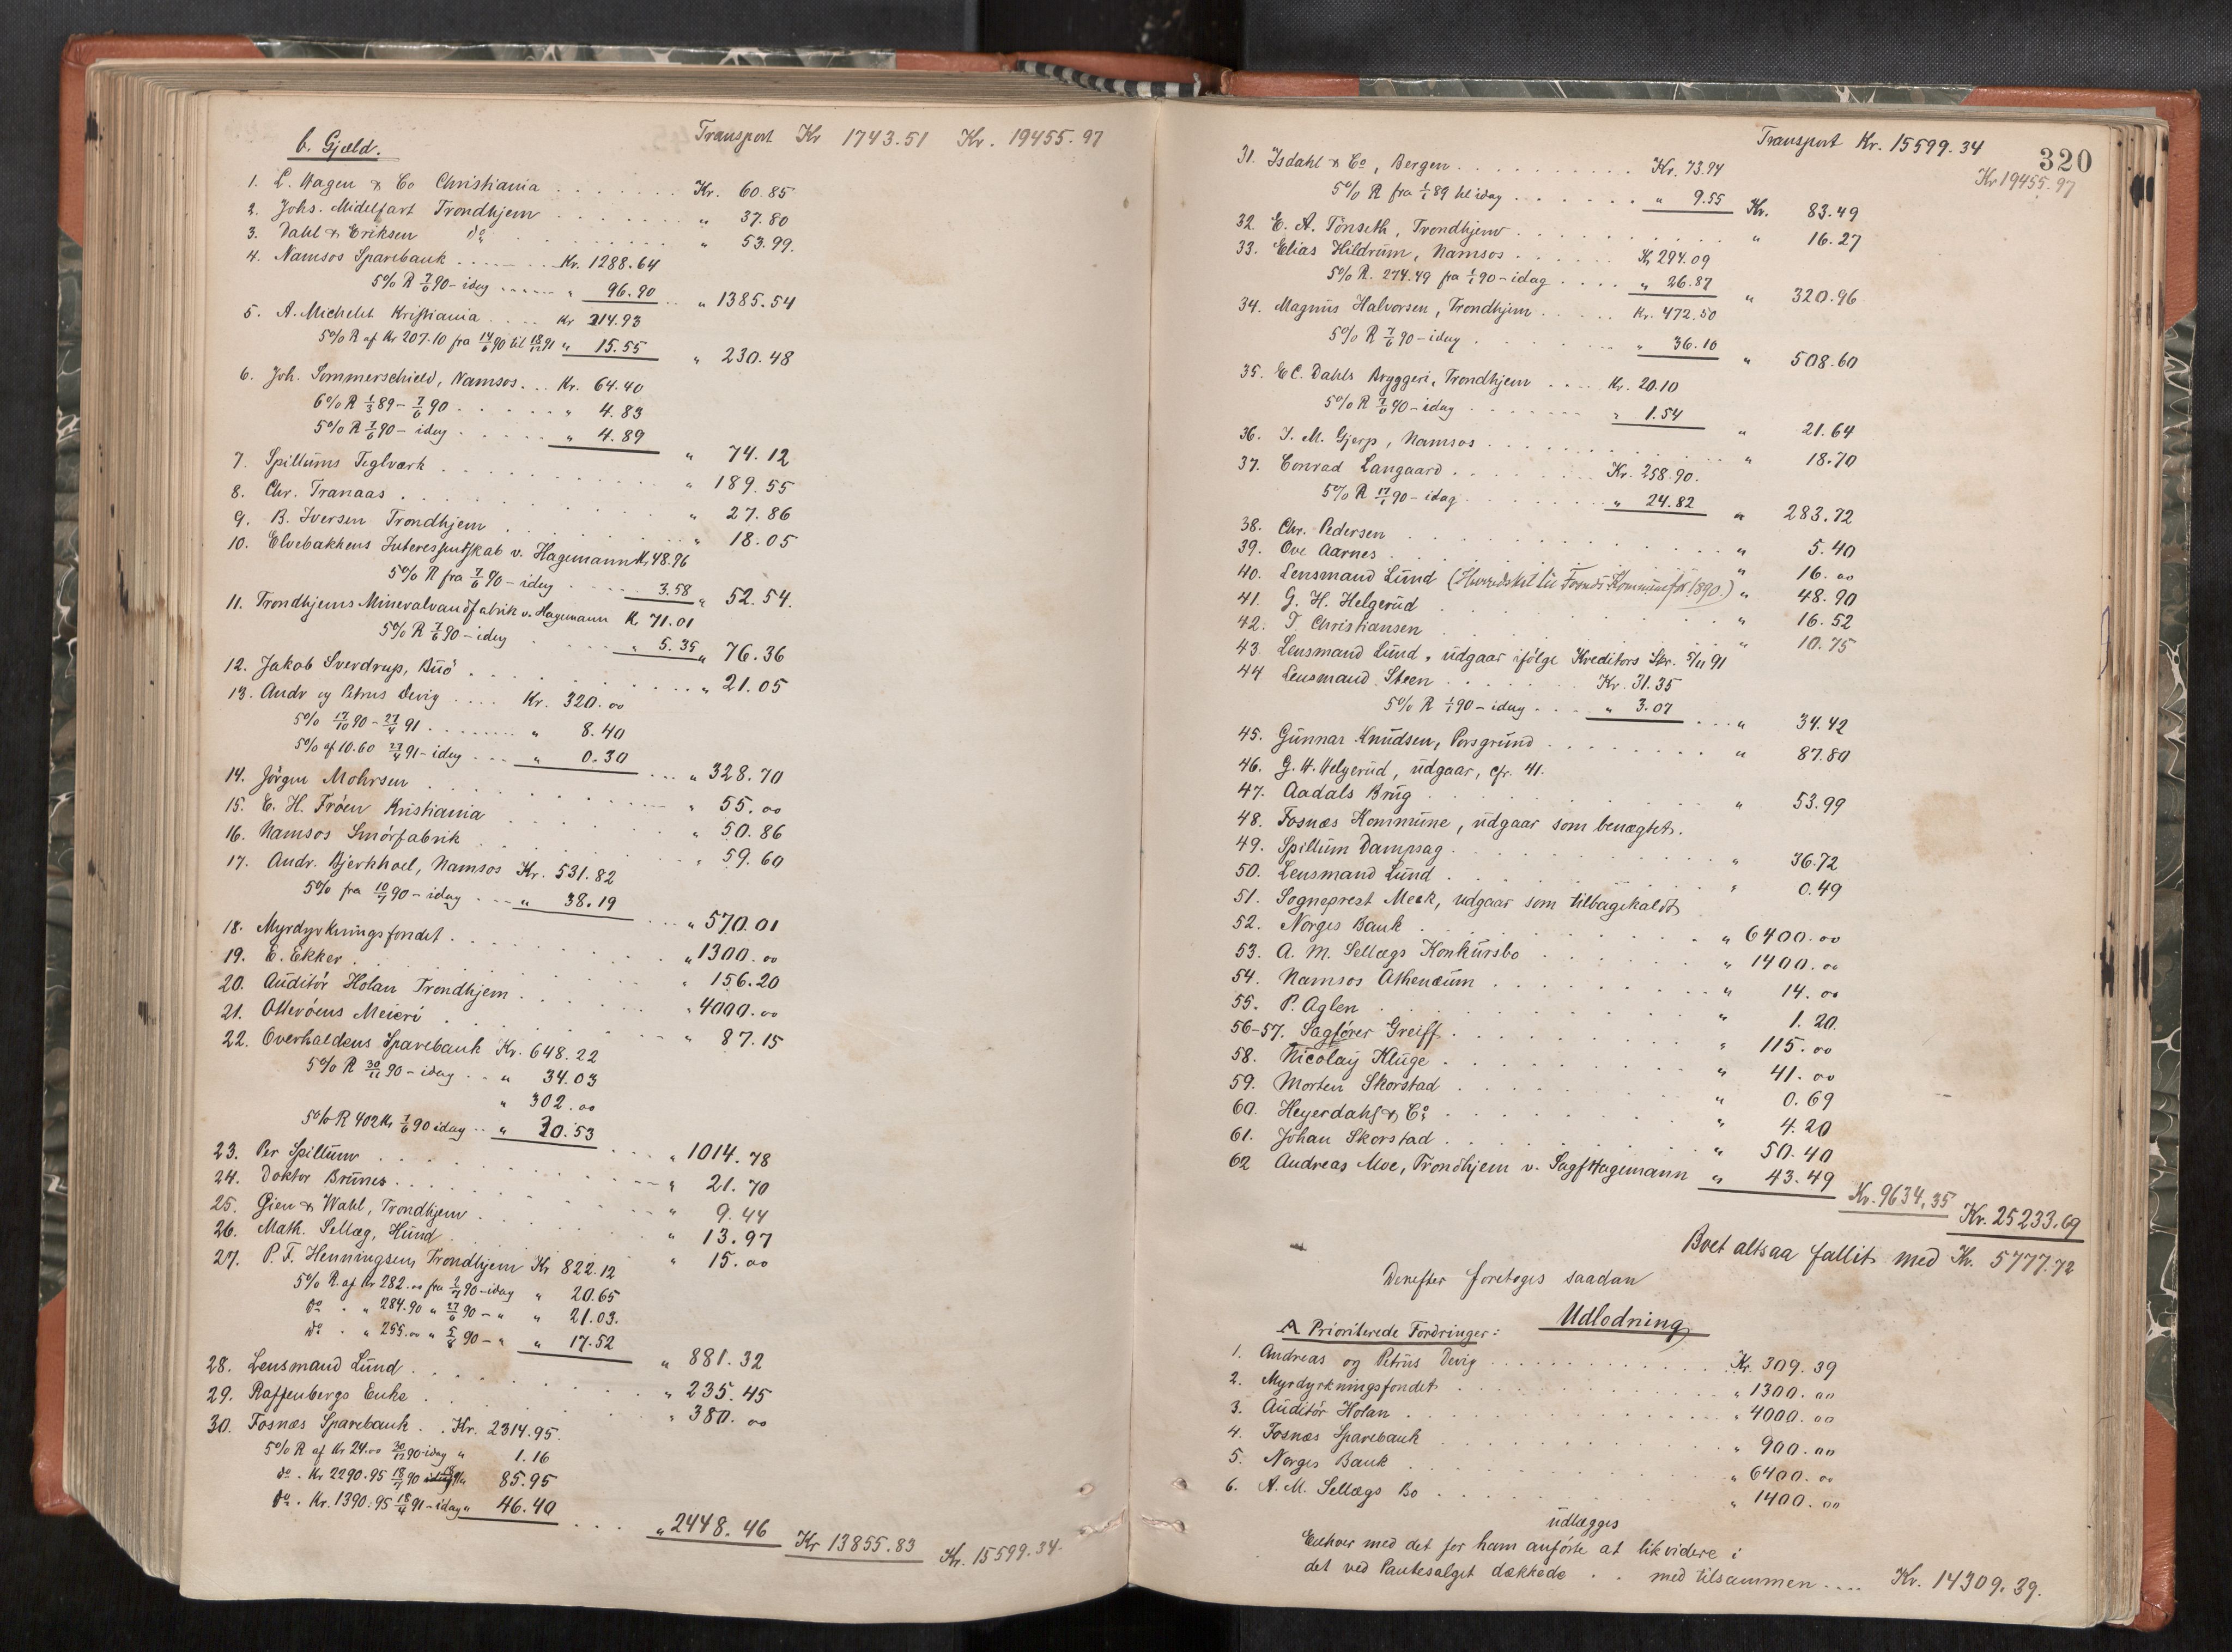 Transport Kr 1743.51 Kr. 19455.97
b. Gjæld.
1. L. Wagen & Co Christiania . . . Kr. 60.85
2. Johs. Midelfart Trondhjem . . . " 37.80
3. Dahl & Eriksen do . . . " 53.99.
4. Namsos Sparebank . . . Kr. 1288.64
5% R 7/6 90 - idag . . . " 96.90 . . " 1385.54
5. A. Michelet Kristiania . . . Kr 214.93
5% R af Kr 207.10 fra 14/6 90 til 18/12 91 " 15.55 " 230.48
6. Joh. Sommerschield, Namsos. . . Kr. 64.40
6% R 1/3 89 - 7/6 90 . . . " 4.83
5% R 7/6 90 - idag . . . " 4.89 " 74.12
7. Spillums Teglværk . . . " 189.55
8. Chr. Tranaas . . . " 27.86
9. B. Iversen Trondhjem . . . " 18.05
10. Elvebakkens Interessentskab v. Hagemann Kr 48.96
5% R fra 7/6 90 - idag . . . 3.58 " 52.54.
11. Trondhjems Mineralvandfabrik v. Hagemann Kr 71.01
5% R 7/6 90 - idag . . . " 5.35 " 76.36
12. Jakob Sverdrup, Buö . . . " 21.05
13. Andr og Petrus Devig . . . Kr. 320.00
5% 17/10 90 - 27/4 91 . . . " 8.40
5% af 10.60 27/4 91 - idag . . . " 0.30 . . . " 328.70
14. Jörgen Mohrsen . . . " 55.00
15. E. H. Fröen Kristiania . . . " 50.86
16. Namsos Smörfabrik . . . " 59.60
17. Andr. Bjerkhoel, Namsos Kr. 531.82
5% fra 10/7 90 - idag . . . " 38.19 . . . " 570.01
18. Myrdyrkningsfondet . . . " 1300.00
19. E. Ekker . . . " 156.20
20. Auditör Holan Trondhjem . . . " 4000.00
21. Otteröens Meieri . . . " 87.15
22. Overhaldens Sparebank Kr. 648.22
5% R 30/11 90 - idag . . " 34.03
" 302.00
5% R 402 Kr 7/6 90 idag . . " 30.53 . . . " 1014.78
23. Per Spillum . . . " 21.70
24. Doktor Brunes . . . " 9.44
25. Gien & Wahl, Trondhjem . . . " 13.97
26. Math. Sellæg, Hund . . . " 15.00
27. P. F. Henningsen Trondhjem Kr 822.12
5% R. af Kr 282.00 fra 2/7 90 - idag " 20.65
do . " 284.90 " 27/6 90 - " " 21.03.
do . " 255.00 " 5/8 90 - " " 17.52 " 881.32
28. Lensmand Lund . . . " 235.45
29. Raffenbergs Enke . . . " 380.00
30. Fosnæs Sparebank . . Kr. 2314.95.
5% R af Kr 24.00 30/12 90 - idag " 1.16
do . Kr 2290.95 18/7 90 18/4 91 " 85.95
do . Kr. 1390.95 18/4 91 - idag " 46.40 . . . " 2448.46 Kr 13855.83 Kr. 15599.34.
Transport Kr. 15599.34
320
Kr 19455.97
31. Isdahl & Co, Bergen . . . Kr. 73.94
5% R fra 1/6 89 til idag . . . " 9.55 Kr. 83.49
32. E. A. Tönseth, Trondhjem . . . " 16.27
33. Elias Hildrum, Namsos . . . Kr 294.09
5% R. 274.49 fra 1/1 90 - idag . . . " 26.87 " 320.96
34. Magnus Halvorsen, Trondhjem . . . Kr. 472.50
5% R 7/6 90 - idag . . . " 36.10 " 508.60
35. E C. Dahls Bryggeri, Trondhjem . . . Kr. 20.10
5% R 7/6 90 - idag . . . " 1.54 " 21.64
36. J. M. Gjerp, Namsos . . . " 18.70
37. Conrad Langaard . . . Kr. 258.90.
5% R 17/1 90 - idag . . . " 24.82 " 283.72
38. Chr. Pedersen . . . " 5.40
39. Ove Aarnes . . . " 16.00
40. Lensmand Lund (Herredskat til Fosnæs Kommune for 1890.) " 48.90
41. G. H. Helgerud . . . " 16.52
42. T. Christiansen . . . " 10.75
43. Lensmand Lund, udgaar ifölge Kreditors Skr. 5/11 91
44 Lensmand Steen . . . Kr. 31.35
5% R 1/1 90 - idag . . . " 3.07 . . . " 34.42
45. Gunnar Knudsen, Porsgrund . . . " 87.80
46. G. H. Helgerud, udgaar, cfr. 41.
47. Aadals Brug . . . " 53.99
48. Fosnæs Kommune, udgaar som benægtet.
49. Spillum Dampsag . . . " 36.72
50. Lensmand Lund . . . " 0.49
51. Sogneprest Meek, udgaar som tilbagekaldt
52. Norges Bank . . . " 6400.00
53. A. M. Sellægs Konkursbo . . . " 1400.00
54. Namsos Athenæum . . . " 14.00
55. P. Aglen . . . " 1.20.
56-57. Sagförer Greiff . . . " 115.00
58. Nicolay Kluge . . . " 41.00
59. Morten Skorstad . . . " 0.69
60. Heyerdahl & Co . . . " 4.20
61. Johan Skorstad . . . " 50.40
62 Andreas Moe, Trondhjem v. Sagf Hagemann " 43.49 Kr. 9634,35 Kr. 25233.69
Boet altsaa fallit med Kr. 5777.72
Derefter foretoges saadan
Udlodning
A Prioriterede Fordringer:
1. Andreas og Petrus Devig . . . Kr. 309.39
2. Myrdyrkningsfondet . . . " 1300.00
3. Auditör Holan . . . " 4000.00
4. Fosnæs Sparebank . . . " 900.00
5. Norges Bank . . . " 6400.00
6. A. M. Sellægs Bo . . . " 1400.00
udlægges
Enhver med det for ham anförte at likvidere i
det ved Pantesalget dækkede . . med tilsammen . . . Kr. 14309.39.